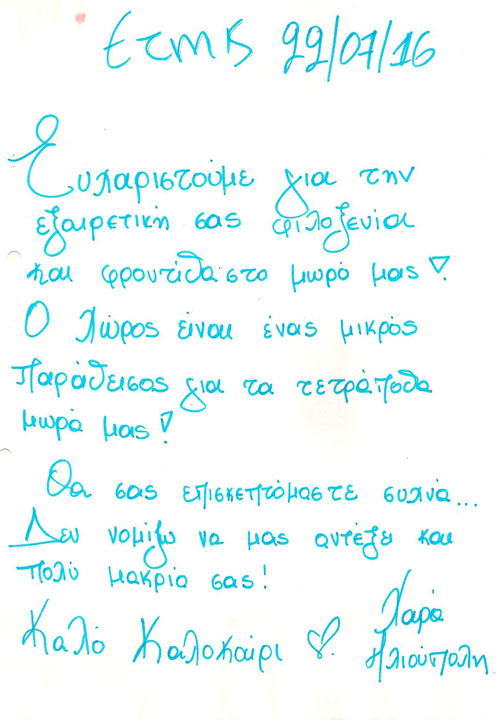 Ετμκ 22/07/16
Ευχαριστούμε για την
εξαιρετική σας φιλοξενία
και φροντίδα στο μωρό μας!
Ο Χώρος είναι ένας μικρός
παράδεισος για τα τετράποδα
μωρά μας!
Θα σας επισκεπτόμαστε συχνά...
Δεν νομίζω να μας αντέξει και
πολύ μακριά σας!
Καλό Καλοκαίρι ♡ Χαρά
Ηλιούπολη